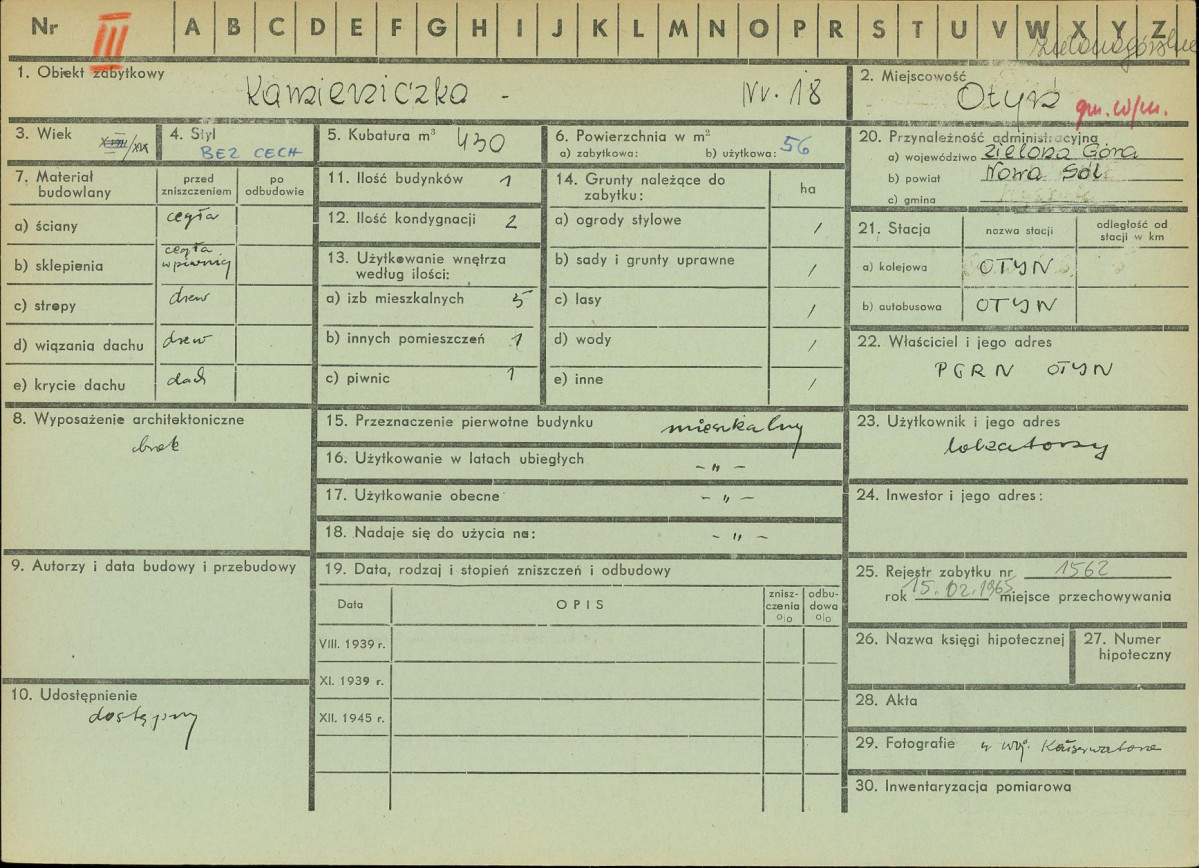 Nr III A B C D E F G H I J K L M N O P R S T U V W X Y Z
zielonogórskie
1. Obiekt zabytkowy
Kamieniczka - Nr. 18
2. Miejscowość
Otyń gm. w/m.
3. Wiek
XVIII/XIX
4. Styl
BEZ CECH
5. Kubatura m³ 430
6. Powierzchnia w m²
a) zabytkowa: b) użytkowa: 56
20. Przynależność administracyjna
a) województwo Zielona Góra
b) powiat Nowa Sól
c) gmina
7. Materiał budowlany
przed zniszczeniem
po odbudowie
a) ściany cegła
b) sklepienia cegła w piwnicy
c) stropy drew
d) wiązania dachu drew
e) krycie dachu dach
11. Ilość budynków 1
12. Ilość kondygnacji 2
13. Użytkowanie wnętrza
według ilości:
a) izb mieszkalnych 5
b) innych pomieszczeń 1
c) piwnic 1
14. Grunty należące do
zabytku:
ha
a) ogrody stylowe /
b) sady i grunty uprawne /
c) lasy /
d) wody /
e) inne /
21. Stacja
nazwa stacji
odległość od
stacji w km
a) kolejowa OTYN
b) autobusowa OTYN
22. Właściciel i jego adres
PGRN OTYN
8. Wyposażenie architektoniczne
brak
15. Przeznaczenie pierwotne budynku mieszkalny
16. Użytkowanie w latach ubiegłych - " -
17. Użytkowanie obecne - " -
18. Nadaje się do użycia na: - " -
23. Użytkownik i jego adres
lokatorzy
24. Inwestor i jego adres:
9. Autorzy i data budowy i przebudowy
19. Data, rodzaj i stopień zniszczeń i odbudowy
Data
OPIS
znisz-
czenia
o|o
odbu-
dowa
o|o
VIII. 1939 r.
XI. 1939 r.
XII. 1945 r.
25. Rejestr zabytku nr 1562
rok 15.02.1965 miejsce przechowywania
26. Nazwa księgi hipotecznej
27. Numer
hipoteczny
10. Udostępnienie
dostępny
28. Akta
29. Fotografie u Woj. Konserwatora
30. Inwentaryzacja pomiarowa